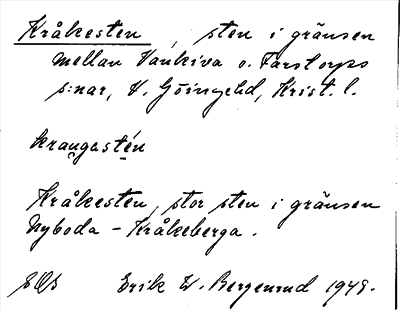 Kråkesten, sten i gränsen
mellan Vankiva o. Farstorps
s:nar, V. Göinge hd, Krist. l.
krangastén
Kråkesten, stor sten i gränsen
Nyboda - Kråkeberga.
Erik W. Bergenrud 1948.